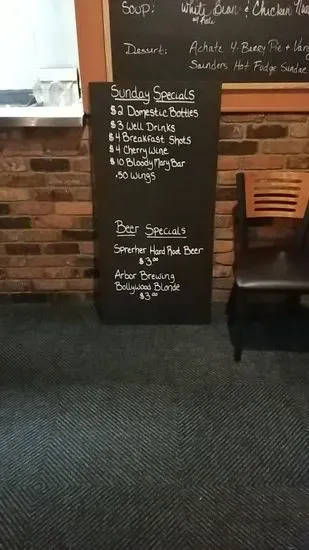 Soup: White Bean & Chicken
Dessert: Achatz 4-Berry Pie +
Saunders Hot Fudge Sundae
Sunday Specials
$2 Domestic Bottles
$3 Well Drinks
$4 Breakfast Shots
$4 Cherry Wine
$10 Bloody Mary Bar
.50 Wings
Beer Specials
Sprecher Hard Root Beer
$3.00
Arbor Brewing
Bollywood Blonde
$3.00